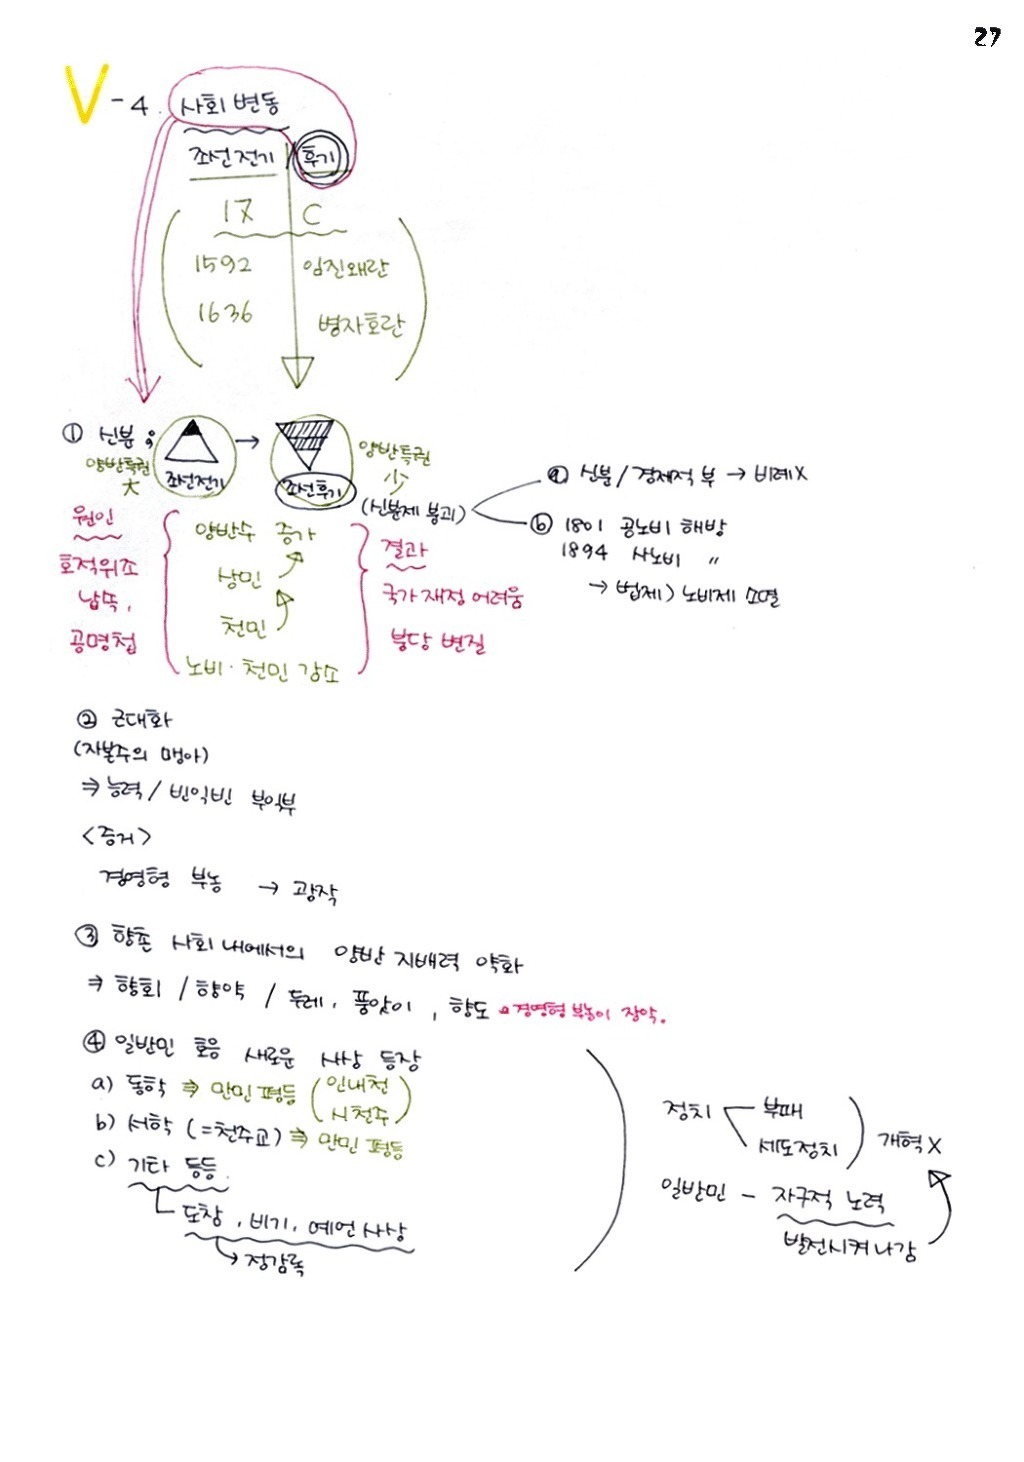 27
V - 4. 사회 변동
조선 전기 / 후기
17 C
1592 임진왜란
1636 병자호란
① 신분 ; → 양반특권
양반특권 조선전기 조선후기 少
大 (신분제 붕괴)
ⓐ 신분/경제적 부 → 비례X
ⓑ 1801 공노비 해방
1894 사노비 〃
→ 법제) 노비제 소멸
원인
호적위조
납속,
공명첩
양반수 증가
상민
천민
노비·천민 감소
결과
국가재정 어려움
붕당 변질
② 근대화
(자본주의 맹아)
⇒ 능력/ 빈익빈 부익부
<증거>
경영형 부농 → 광작
③ 향촌 사회 내에서의 양반 지배력 약화
⇒ 향회 / 향약 / 두레, 품앗이, 향도 경영형 부농이 장악.
④ 일반민 호응 새로운 사상 등장
a) 동학 ⇒ 만민 평등 (인내천
시천주)
b) 서학 (=천주교) ⇒ 만민 평등
c) 기타 등등.
도참, 비기, 예언 사상
→ 정감록
정치 부패
세도정치) 개혁 X
일반민 - 자구적 노력
발전시켜 나감